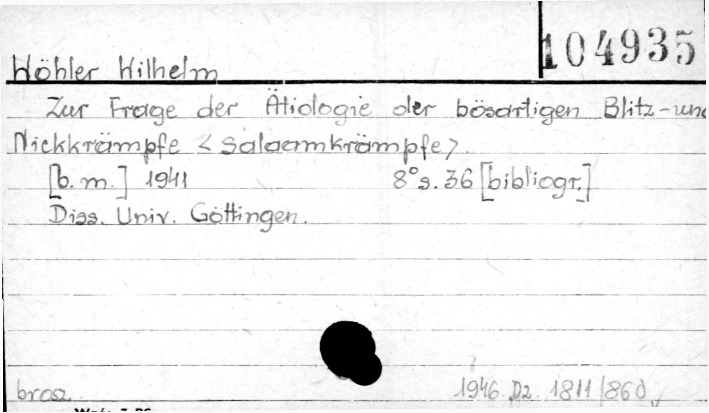 104935
Wöhler Wilhelm
Zur Frage der Ätiologie der bösartigen Blitz- und
Nickkrämpfe <Salaamkrämpfe>.
[b.m.] 1941 8° s. 36 [bibliogr.]
Diss. Univ. Göttingen.
brosz. 1946. Dz. 1811/860